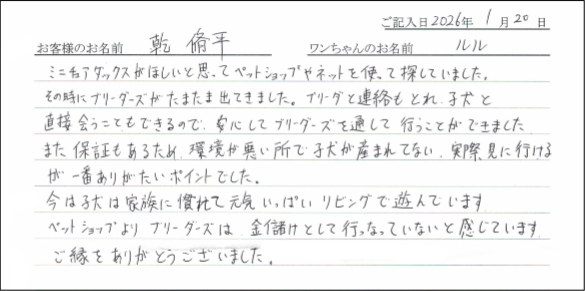 ご記入日2026年 1月 20日
お客様のお名前 乾 脩平 ワンちゃんのお名前 ルル
ミニチュアダックスがほしいと思ってペットショップやネットを使って探していました。
その時にブリーダーズがたまたま出てきました。ブリーダーと連絡もとれ、子犬と
直接会うこともできるので、安心してブリーダーズを通して行うことができました
また保証もあるため、環境が悪い所で子犬が産まれてない、実際見に行ける
が一番ありがたいポイントでした。
今は子犬は家族に慣れて元気いっぱいリビングで遊んでいます
ペットショップよりブリーダーズは、金儲けとして行っなっていないと感じています
ご縁をありがとうございました。